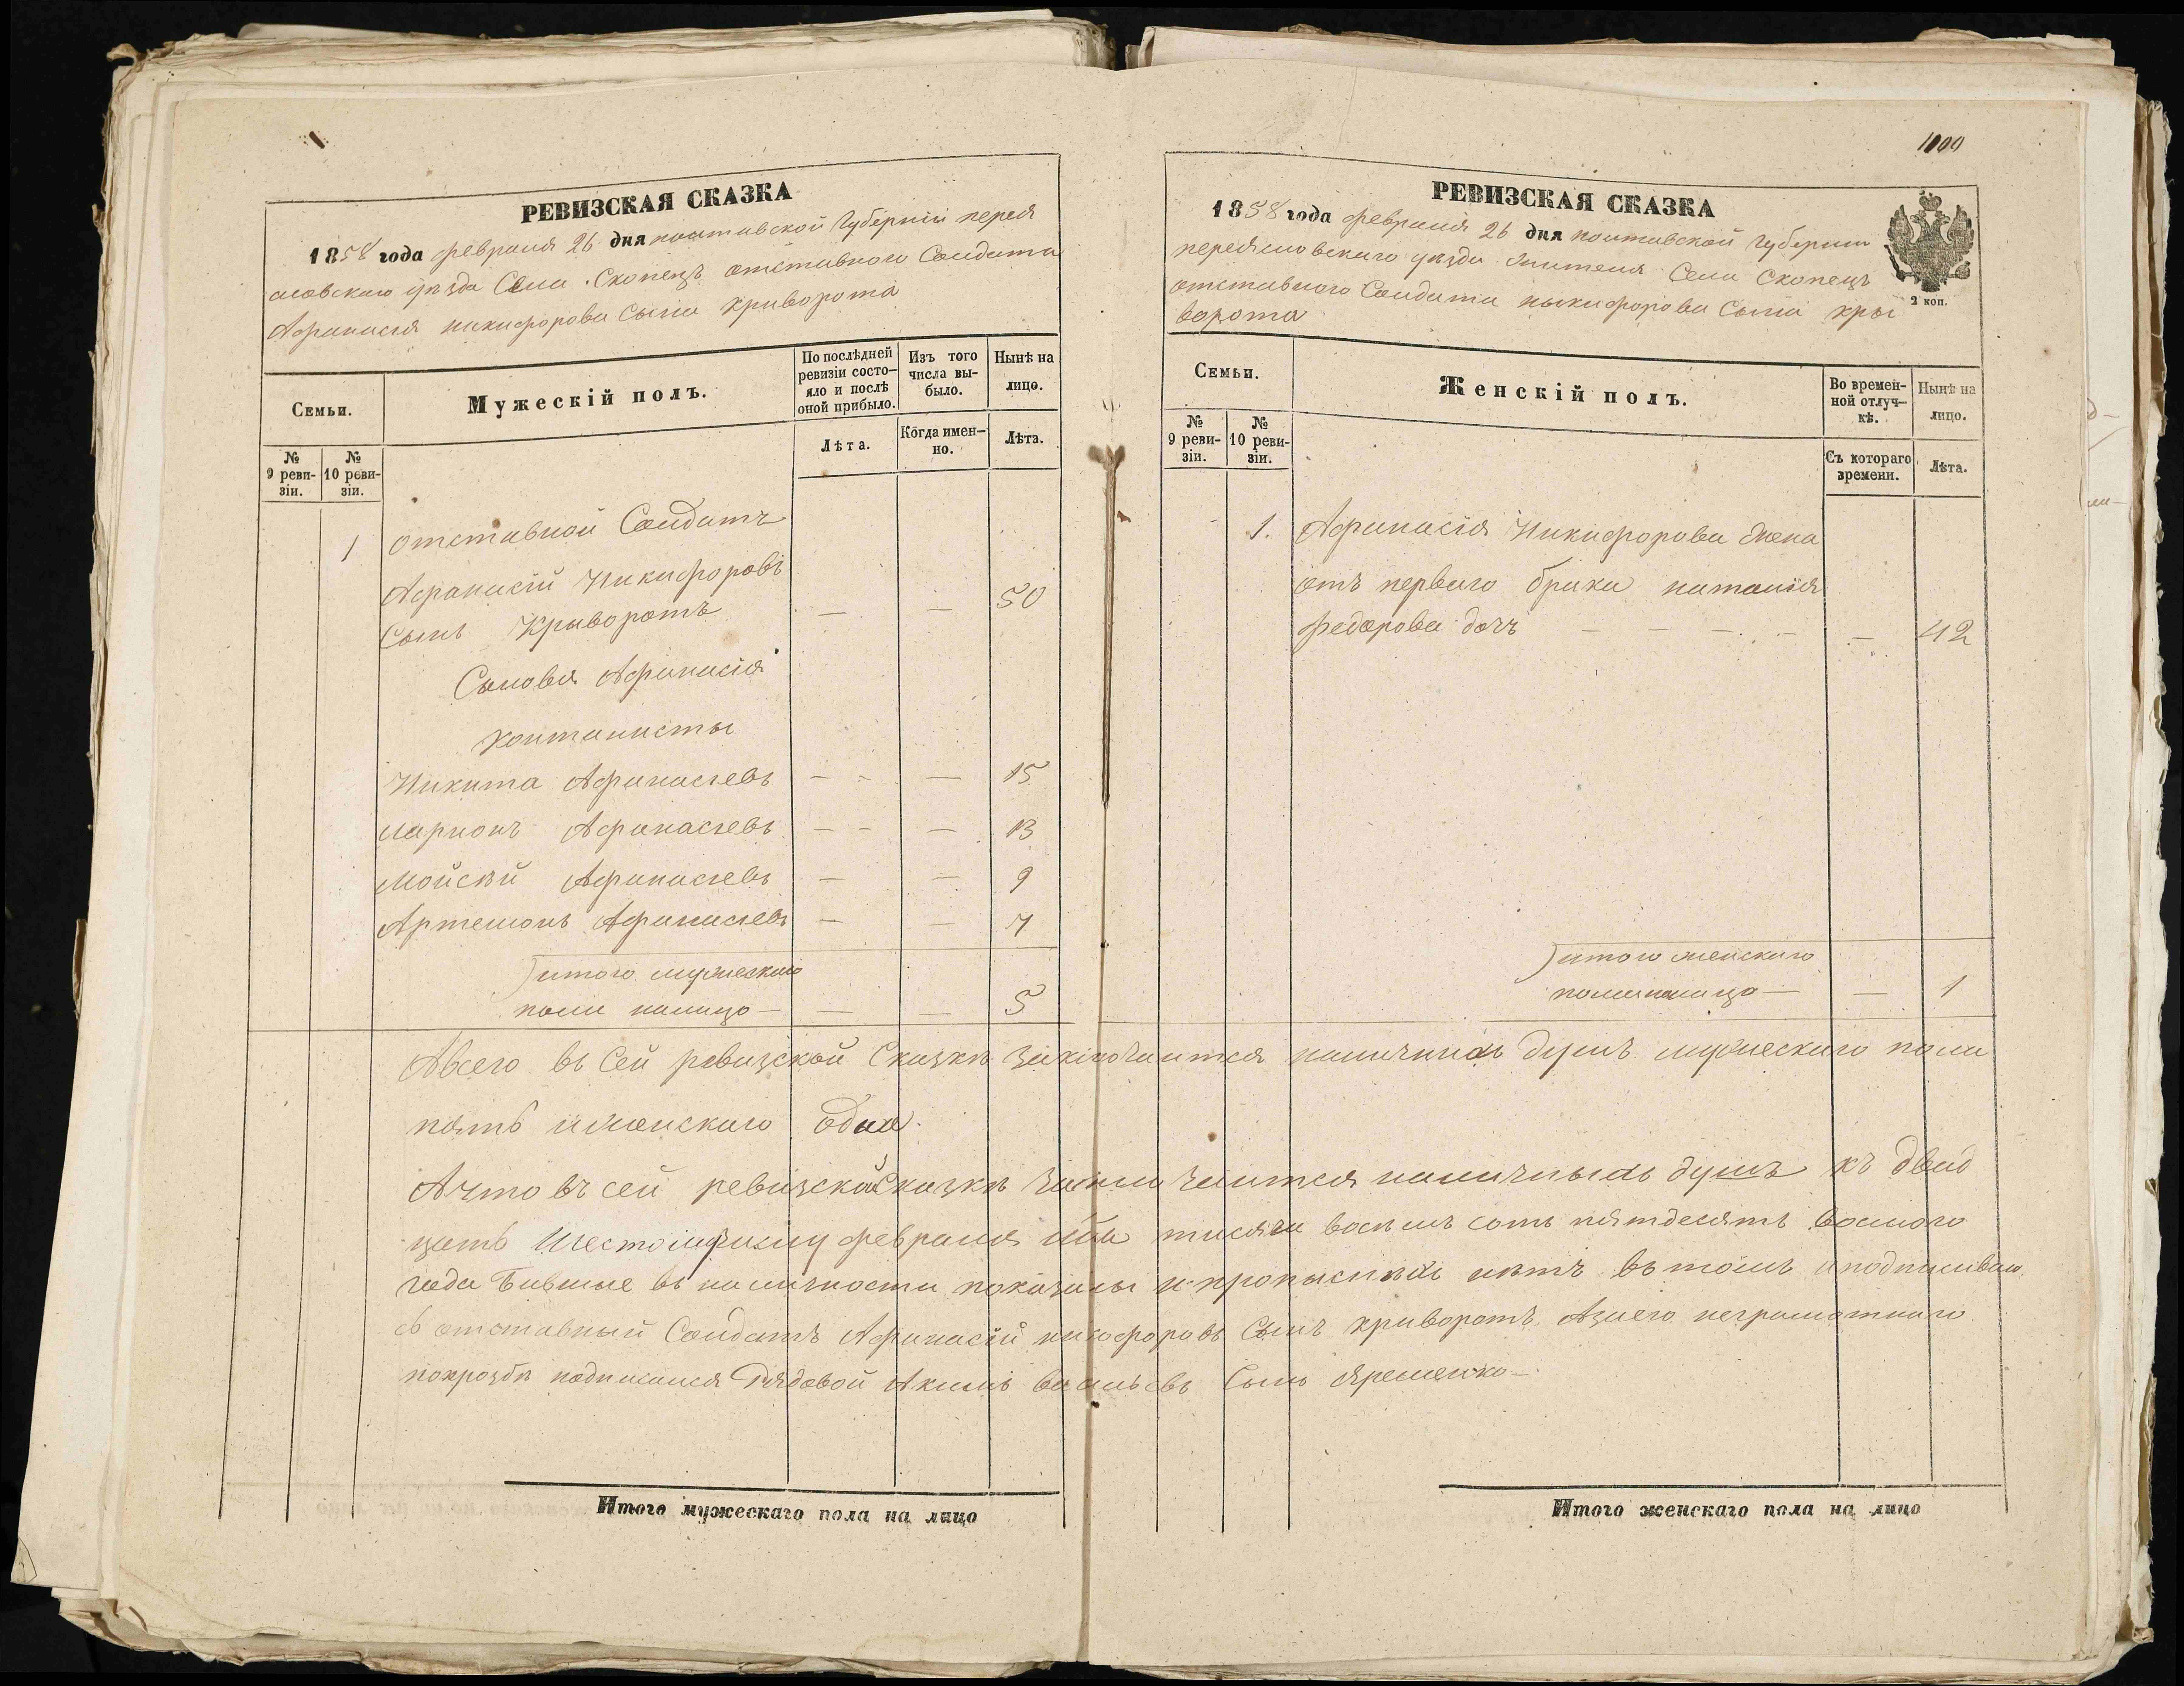 РЕВИЗСКАЯ СКАЗКА
1858 года февраля 26 дня полтавской Губернiи перея
славскаго уѣзда Села Скопецъ отставного Солдата
Афанасiя никифорова Сына Криворота
Семьи.
Мужескiй полъ.
По послѣдней ревизiи состо-
яло и послѣ оной прибыло.
Изъ того числа вы-
было.
Нынѣ на лицо.
№ 9 реви-
зiи.
№ 10 реви-
зiи.
Лѣта.
Когда имен-
но.
Лѣта.
1 отставной Солдатъ
Афанасiй Никифоровъ
Сынъ Криворотъ — — 50
Сыновя Афанасiя
контонисты
Никита Афанасиевъ — - — 15
ларионъ Афанасиевъ — - — 13
Мойсѣй Афанасиевъ — — 9
Артемонъ Афанасиевъ — — 7
итого мужескаго
пола налицо — — — 5
1000
РЕВИЗСКАЯ СКАЗКА
1858 года февраля 26 дня полтавской губернии
переяславскаго уѣзда жителя Села Скопецъ
отставного Солдата ныкифорова Сына кры
ворота
2 коп.
Семьи.
Женскiй полъ.
Во времен-
ной отлуч-
кѣ.
Нынѣ на лицо.
№ 9 реви-
зiи.
№ 10 реви-
зiи.
Съ котораго времени.
Лѣта.
1. Афанасiя Никифорова жена
отъ перваго брака наталiя
федорова дочъ — — — — — 42
итого женскаго
пола налицо — — 1
Авсего въ Сей ревизской Сказкѣ заключаится наличныхъ душъ мужескаго пола
пять и женскаго одна.
Ачто въ сей ревизской Сказкѣ заключаится наличныхъ душъ къ двад
цать Шестому февраля тисяча восѣмъ сотъ пятдесятъ восмого
года Бившые въ наличности показаны и пропысныхъ нѣтъ въ томъ и подписиваю
съ отставный Солдатъ Афанасiй никофоровъ Сынъ криворотъ Азнего неграмотнаго
попрозбѣ подписался Рядовой Акимъ Васильевъ Сынъ Яременко —
Итого мужескаго пола на лицо
Итого женскаго пола на лицо